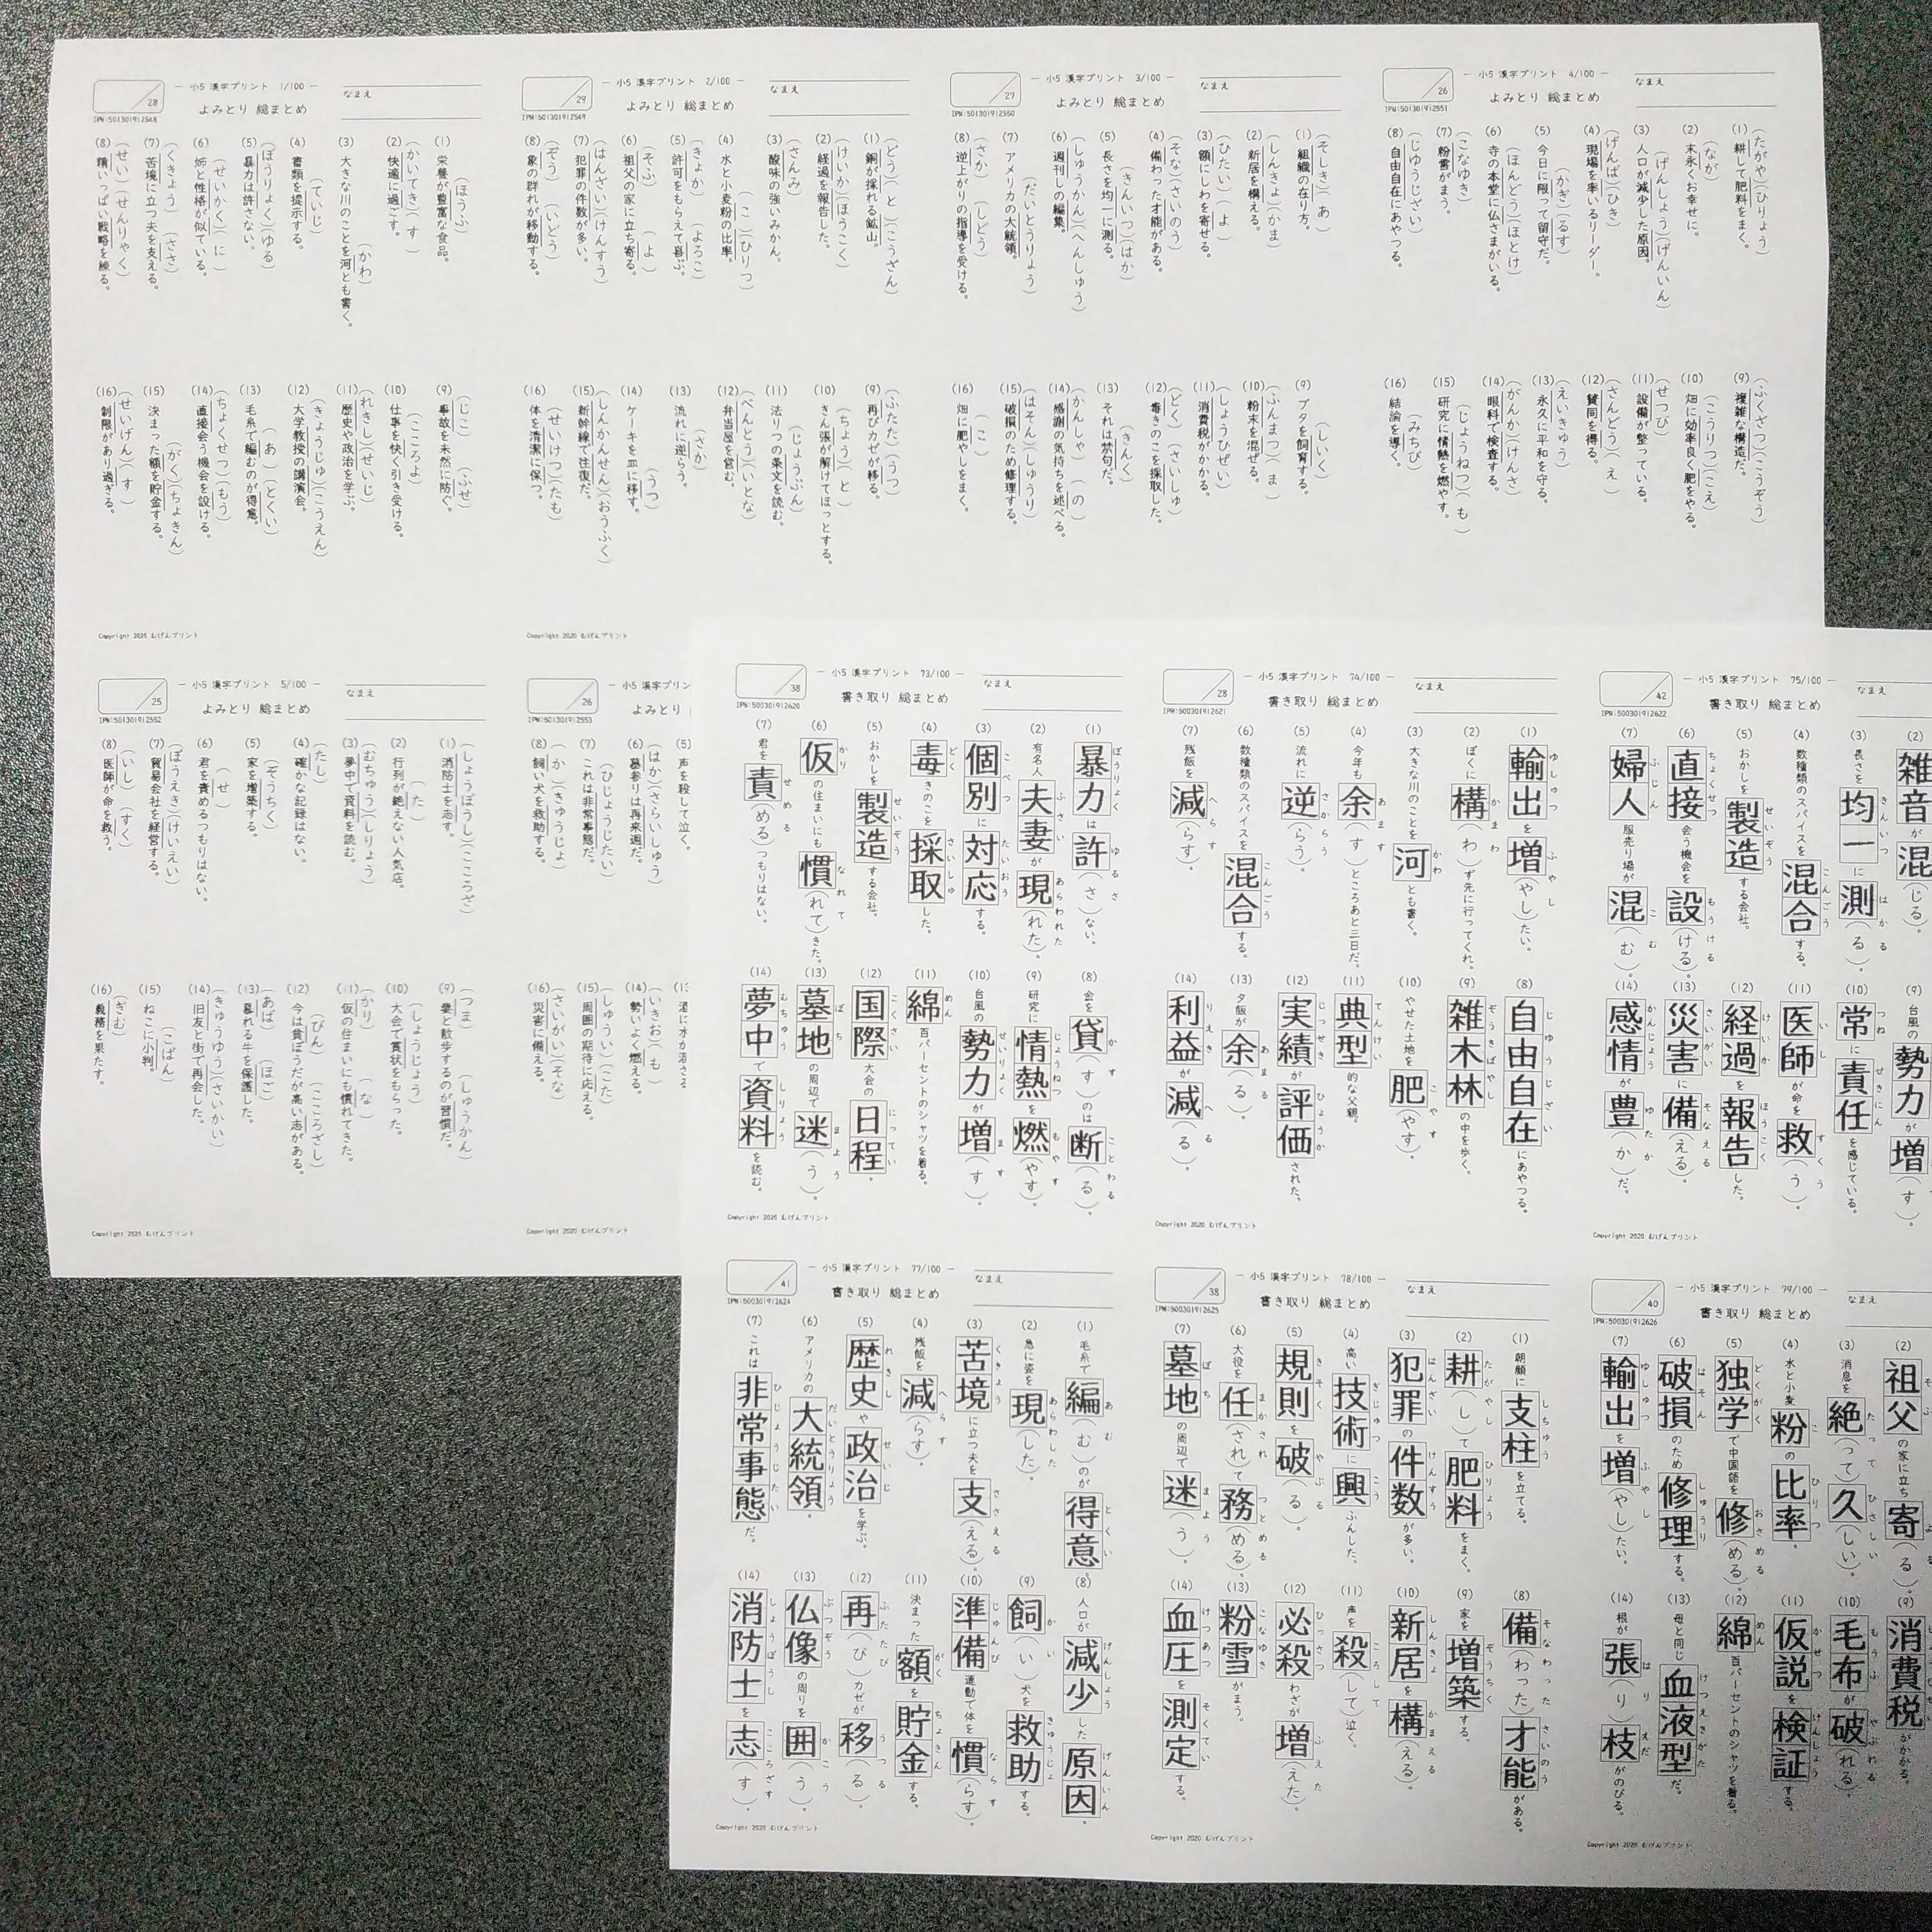 — 小5 漢字プリント 1/100 —
よみとり 総まとめ
なまえ
28
IPN:501301912548
(1) 栄養が豊富な食品。
(ほうふ)
(2) 快適に過ごす。
(かいてき)(す)
(3) 大きな川のことを河とも書く。
(かわ)
(4) 書類を提示する。
(ていじ)
(5) 暴力は許さない。
(ぼうりょく)(ゆる)
(6) 姉と性格が似ている。
(せいかく)(に)
(7) 苦境に立つ夫を支える。
(くきょう)(ささ)
(8) 精いっぱい戦略を練る。
(せい)(せんりゃく)
(9) 事故を未然に防ぐ。
(じこ)(ふせ)
(10) 仕事を快く引き受ける。
(こころよ)
(11) 歴史や政治を学ぶ。
(れきし)(せいじ)
(12) 大学教授の講演会。
(きょうじゅ)(こうえん)
(13) 毛糸で編むのが得意。
(あ)(とくい)
(14) 直接会う機会を設ける。
(ちょくせつ)(もう)
(15) 決まった額を貯金する。
(がく)(ちょきん)
(16) 制限があり過ぎる。
(せいげん)(す)
Copyright 2020 むげんプリント
— 小5 漢字プリント 2/100 —
よみとり 総まとめ
なまえ
29
IPN:501301912549
(1) 銅が採れる鉱山。
(どう)(と)(こうざん)
(2) 経過を報告した。
(けいか)(ほうこく)
(3) 酸味の強いみかん。
(さんみ)
(4) 水と小麦粉の比率。
(こ)(ひりつ)
(5) 許可をもらえて喜ぶ。
(きょか)(よろこ)
(6) 祖父の家に立ち寄る。
(そふ)(よ)
(7) 犯罪の件数が多い。
(はんざい)(けんすう)
(8) 象の群れが移動する。
(ぞう)(いどう)
(9) 再びカゼが移る。
(ふたた)(うつ)
(10) きん張が解けてほっとする。
(ちょう)(と)
(11) 法りつの条文を読む。
(じょうぶん)
(12) 弁当屋を営む。
(べんとう)(いとな)
(13) 流れに逆らう。
(さか)
(14) ケーキを皿に移す。
(うつ)
(15) 新幹線で往復だ。
(しんかんせん)(おうふく)
(16) 体を清潔に保つ。
(せいけつ)(たも)
Copyright 2020 むげんプリント
— 小5 漢字プリント 3/100 —
よみとり 総まとめ
なまえ
27
IPN:501301912550
(1) 組織の在り方。
(そしき)(あ)
(2) 新居を構える。
(しんきょ)(かま)
(3) 額にしわを寄せる。
(ひたい)(よ)
(4) 備わった才能がある。
(そな)(さいのう)
(5) 長さを均一に測る。
(きんいつ)(はか)
(6) 週刊しの編集。
(しゅうかん)(へんしゅう)
(7) アメリカの大統領。
(だいとうりょう)
(8) 逆上がりの指導を受ける。
(さか)(しどう)
(9) ブタを飼育する。
(しいく)
(10) 粉末を混ぜる。
(ふんまつ)(ま)
(11) 消費税がかかる。
(しょうひぜい)
(12) 毒きのこを採取した。
(どく)(さいしゅ)
(13) それは禁句だ。
(きんく)
(14) 感謝の気持ちを述べる。
(かんしゃ)(の)
(15) 破損のため修理する。
(はそん)(しゅうり)
(16) 畑に肥やしをまく。
(こ)
— 小5 漢字プリント 4/100 —
よみとり 総まとめ
なまえ
26
IPN:501301912551
(1) 耕して肥料をまく。
(たがや)(ひりょう)
(2) 末永くお幸せに。
(なが)
(3) 人口が減少した原因。
(げんしょう)(げんいん)
(4) 現場を率いるリーダー。
(げんば)(ひき)
(5) 今日に限って留守だ。
(かぎ)(るす)
(6) 寺の本堂に仏さまがいる。
(ほんどう)(ほとけ)
(7) 粉雪がまう。
(こなゆき)
(8) 自由自在にあやつる。
(じゆうじざい)
(9) 複雑な構造だ。
(ふくざつ)(こうぞう)
(10) 畑に効率良く肥をやる。
(こうりつ)(こえ)
(11) 設備が整っている。
(せつび)
(12) 賛同を得る。
(さんどう)(え)
(13) 永久に平和を守る。
(えいきゅう)
(14) 眼科で検査する。
(がんか)(けんさ)
(15) 研究に情熱を燃やす。
(じょうねつ)(も)
(16) 結論を導く。
(みちび)
— 小5 漢字プリント 5/100 —
よみとり 総まとめ
なまえ
25
IPN:501301912552
(1) 消防士を志す。
(しょうぼうし)(こころざ)
(2) 行列が絶えない人気店。
(た)
(3) 夢中で資料を読む。
(むちゅう)(しりょう)
(4) 確かな記録はない。
(たし)
(5) 家を増築する。
(ぞうちく)
(6) 君を責めるつもりはない。
(せ)
(7) 貿易会社を経営する。
(ぼうえき)(けいえい)
(8) 医師が命を救う。
(いし)(すく)
(9) 妻と散歩するのが習慣だ。
(つま)(しゅうかん)
(10) 大会で賞状をもらった。
(しょうじょう)
(11) 仮の住まいにも慣れてきた。
(かり)(な)
(12) 今は貧ぼうだが高い志がある。
(びん)(こころざし)
(13) 暴れる牛を保護した。
(あば)(ほご)
(14) 旧友と街で再会した。
(きゅうゆう)(さいかい)
(15) ねこに小判。
(こばん)
(16) 義務を果たす。
(ぎむ)
Copyright 2020 むげんプリント
— 小5 漢字プリ
よみとり
26
IPN:501301912553
(5) 声を殺して泣く。
(6) 墓参りは再来週だ。
(はか)(さらいしゅう)
(7) これは非常事態だ。
(ひじょうじたい)
(8) 飼い犬を救助する。
(か)(きゅうじょ)
(14) 勢いよく燃える。
(いきお)(も)
(15) 周囲の期待に応える。
(しゅうい)(こた)
(16) 災害に備える。
(さいがい)(そな)
Copyright 2020 むげんプリント
— 小5 漢字プリント 73/100 —
書き取り 総まとめ
なまえ
38
IPN:500301912620
(1) 暴力は許(さ)ない。
ぼうりょく ゆる さ
(2) 有名人夫妻が現(れた)。
ふさい あらわれた
(3) 個別に対応する。
こべつ たいおう
(4) 毒きのこを採取した。
どく さいしゅ
(5) おかしを製造する会社。
せいぞう
(6) 仮の住まいにも慣(れて)きた。
かり なれて
(7) 君を責(める)つもりはない。
せめる
(8) 金を貸(す)のは断(る)。
かす ことわる
(9) 研究に情熱を燃(やす)。
じょうねつ もやす
(10) 台風の勢力が増(す)。
せいりょく ます
(11) 綿百パーセントのシャツを着る。
めん
(12) 国際大会の日程。
こくさい にってい
(13) 墓地の周辺で迷(う)。
ぼち まよう
(14) 夢中で資料を読む。
むちゅう しりょう
Copyright 2020 むげんプリント
— 小5 漢字プリント 74/100 —
書き取り 総まとめ
なまえ
28
IPN:500301912621
(1) 輸出を増(やし)たい。
ゆしゅつ ふやし
(2) ぼくに構(わ)ず先に行ってくれ。
かまわ
(3) 大きな川のことを河とも書く。
かわ
(4) 今年も余(す)ところあと三日だ。
あます
(5) 流れに逆(らう)。
さからう
(6) 数種類のスパイスを混合する。
こんごう
(7) 残飯を減(らす)。
へらす
(8) 自由自在にあやつる。
じゆうじざい
(9) 雑木林の中を歩く。
ぞうきばやし
(10) やせた土地を肥(やす)。
こやす
(11) 典型的な父親。
てんけい
(12) 実績が評価された。
じっせき ひょうか
(13) 夕飯が余(る)。
あまる
(14) 利益が減(る)。
りえき へる
Copyright 2020 むげんプリント
— 小5 漢字プリント 75/100 —
書き取り 総まとめ
なまえ
42
IPN:500301912622
(2) 雑音が混(じる)。
(3) 長さを均一に測(る)。
きんいつ はかる
(4) 数種類のスパイスを混合する。
こんごう
(5) おかしを製造する会社。
せいぞう
(6) 直接会う機会を設(ける)。
ちょくせつ もうける
(7) 婦人服売り場が混(む)。
ふじん こむ
(9) 台風の勢力が増(す)。
(10) 常に責任を感じている。
つね せきにん
(11) 医師が命を救(う)。
いし すくう
(12) 経過を報告した。
けいか ほうこく
(13) 災害に備(える)。
さいがい そなえる
(14) 感情が豊(か)だ。
かんじょう ゆたか
Copyright 2020 むげんプリント
— 小5 漢字プリント 77/100 —
書き取り 総まとめ
なまえ
41
IPN:500301912624
(1) 毛糸で編(む)のが得意。
あむ とくい
(2) 急に姿を現(した)。
あらわした
(3) 苦境に立つ夫を支(える)。
くきょう ささえる
(4) 残飯を減(らす)。
へらす
(5) 歴史や政治を学ぶ。
れきし せいじ
(6) アメリカの大統領。
だいとうりょう
(7) これは非常事態だ。
ひじょうじたい
(8) 人口が減少した原因。
げんしょう げんいん
(9) 飼(い)犬を救助する。
かい きゅうじょ
(10) 準備運動で体を慣(らす)。
じゅんび ならす
(11) 決まった額を貯金する。
がく ちょきん
(12) 再(び)カゼが移(る)。
ふたたび うつる
(13) 仏像の周りを囲(う)。
ぶつぞう かこう
(14) 消防士を志(す)。
しょうぼうし こころざす
Copyright 2020 むげんプリント
— 小5 漢字プリント 78/100 —
書き取り 総まとめ
なまえ
38
IPN:500301912625
(1) 朝顔に支柱を立てる。
しちゅう
(2) 耕(し)て肥料をまく。
たがやし ひりょう
(3) 犯罪の件数が多い。
はんざい けんすう
(4) 高い技術に興ふんした。
ぎじゅつ こう
(5) 規則を破(る)。
きそく やぶる
(6) 大役を任(され)て務(める)。
まかされ つとめる
(7) 墓地の周辺で迷(う)。
ぼち まよう
(8) 備(わった)才能がある。
そなわった さいのう
(9) 家を増築する。
ぞうちく
(10) 新居を構(える)。
しんきょ かまえる
(11) 声を殺(して)泣く。
ころして
(12) 必殺わざが増(えた)。
ひっさつ ふえた
(13) 粉雪がまう。
こなゆき
(14) 血圧を測定する。
けつあつ そくてい
Copyright 2020 むげんプリント
— 小5 漢字プリント 79/100 —
書き取り 総まとめ
なまえ
40
IPN:500301912626
(2) 祖父の家に立ち寄(る)。
(3) 消息を絶(って)久(しい)。
たって ひさしい
(4) 水と小麦粉の比率。
こ ひりつ
(5) 独学で中国語を修(める)。
どくがく おさめる
(6) 破損のため修理する。
はそん しゅうり
(7) 輸出を増(やし)たい。
ゆしゅつ ふやし
(9) 消費税がかかる。
(10) 毛布が破(れる)。
もうふ やぶれる
(11) 仮説を検証する。
かせつ けんしょう
(12) 綿百パーセントのシャツを着る。
めん
(13) 母と同じ血液型だ。
けつえきがた
(14) 根が張(り)枝がのびる。
はり えだ
Copyright 2020 むげんプリント